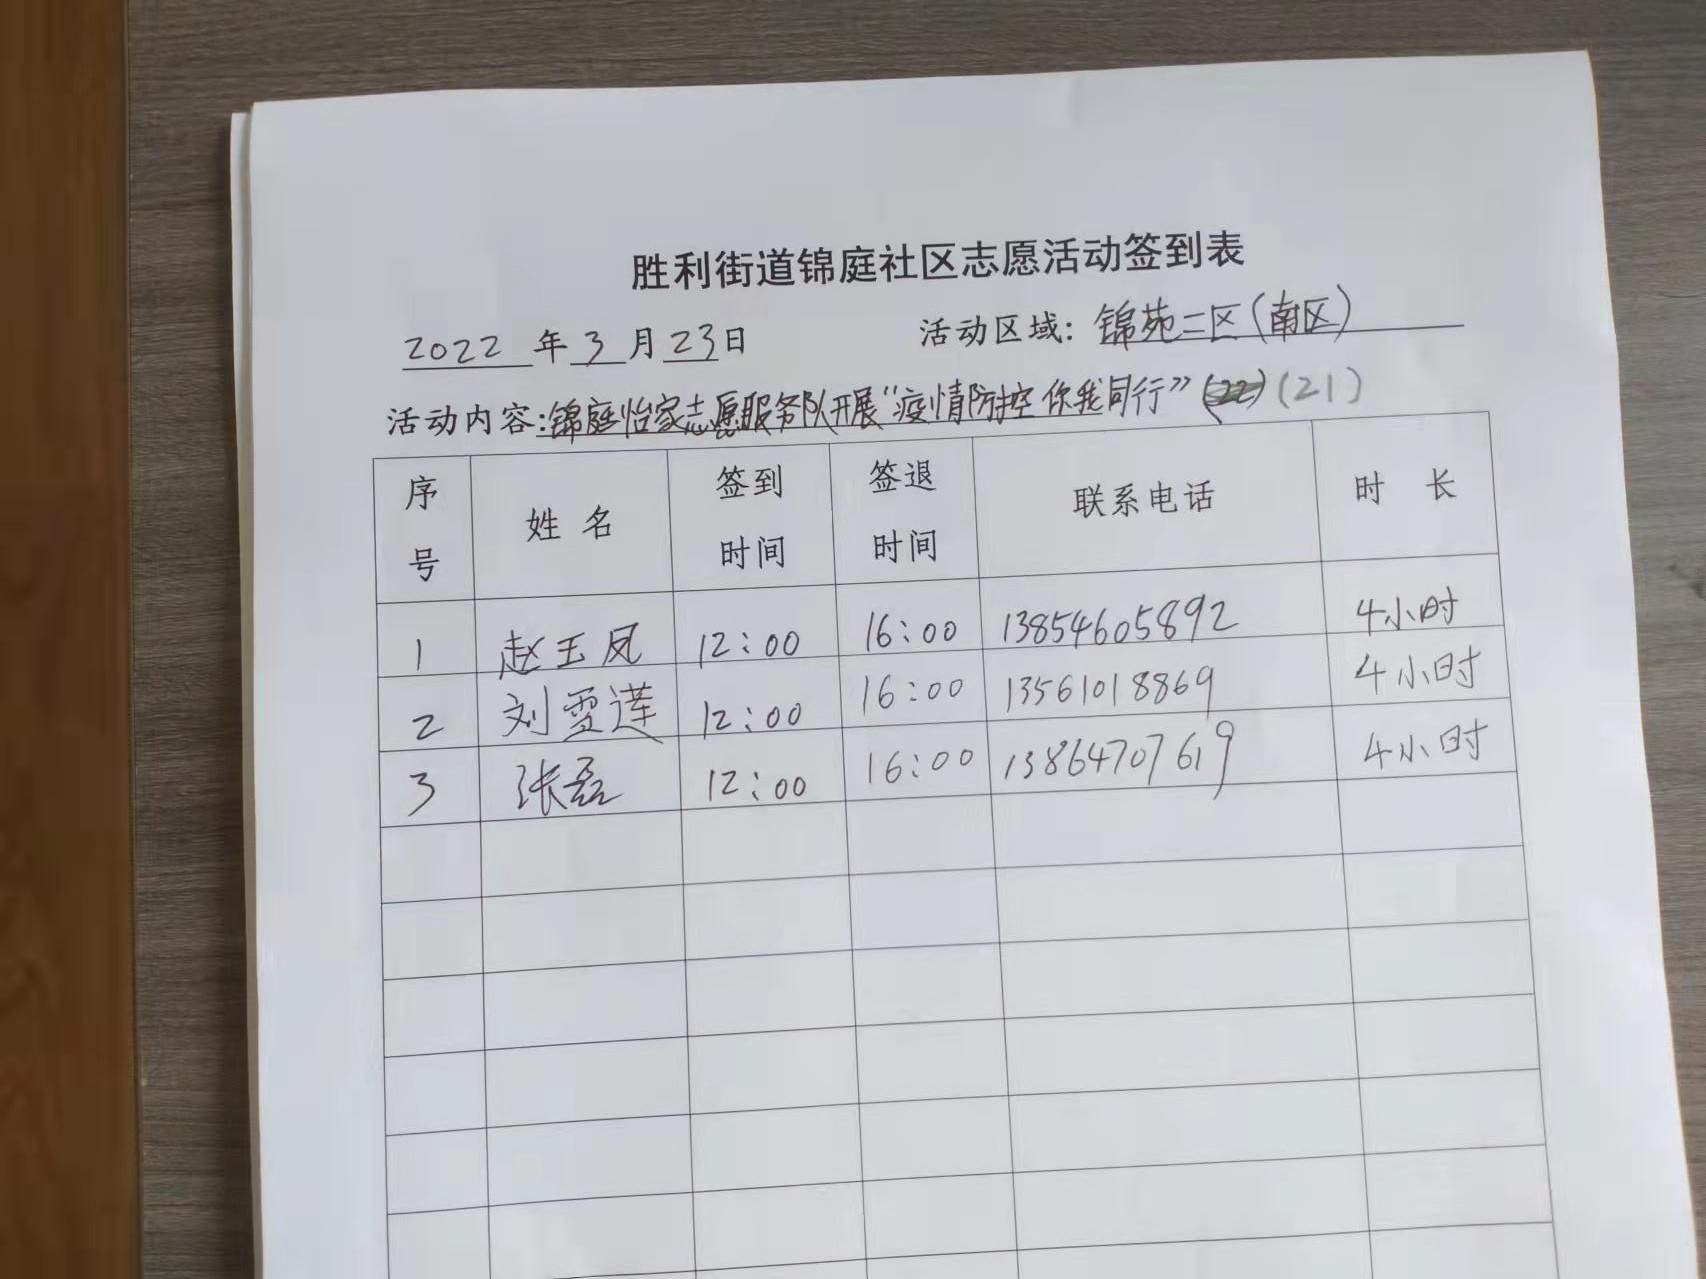 胜利街道锦庭社区志愿活动签到表
2022 年 3 月 23 日 活动区域：锦苑二区（南区）
活动内容：锦庭怡家志愿服务队开展“疫情防控 你我同行” (21)
序号 姓名 签到时间 签退时间 联系电话 时长
1 赵玉凤 12:00 16:00 13854605892 4小时
2 刘雪莲 12:00 16:00 13561018869 4小时
3 张磊 12:00 16:00 13864707619 4小时